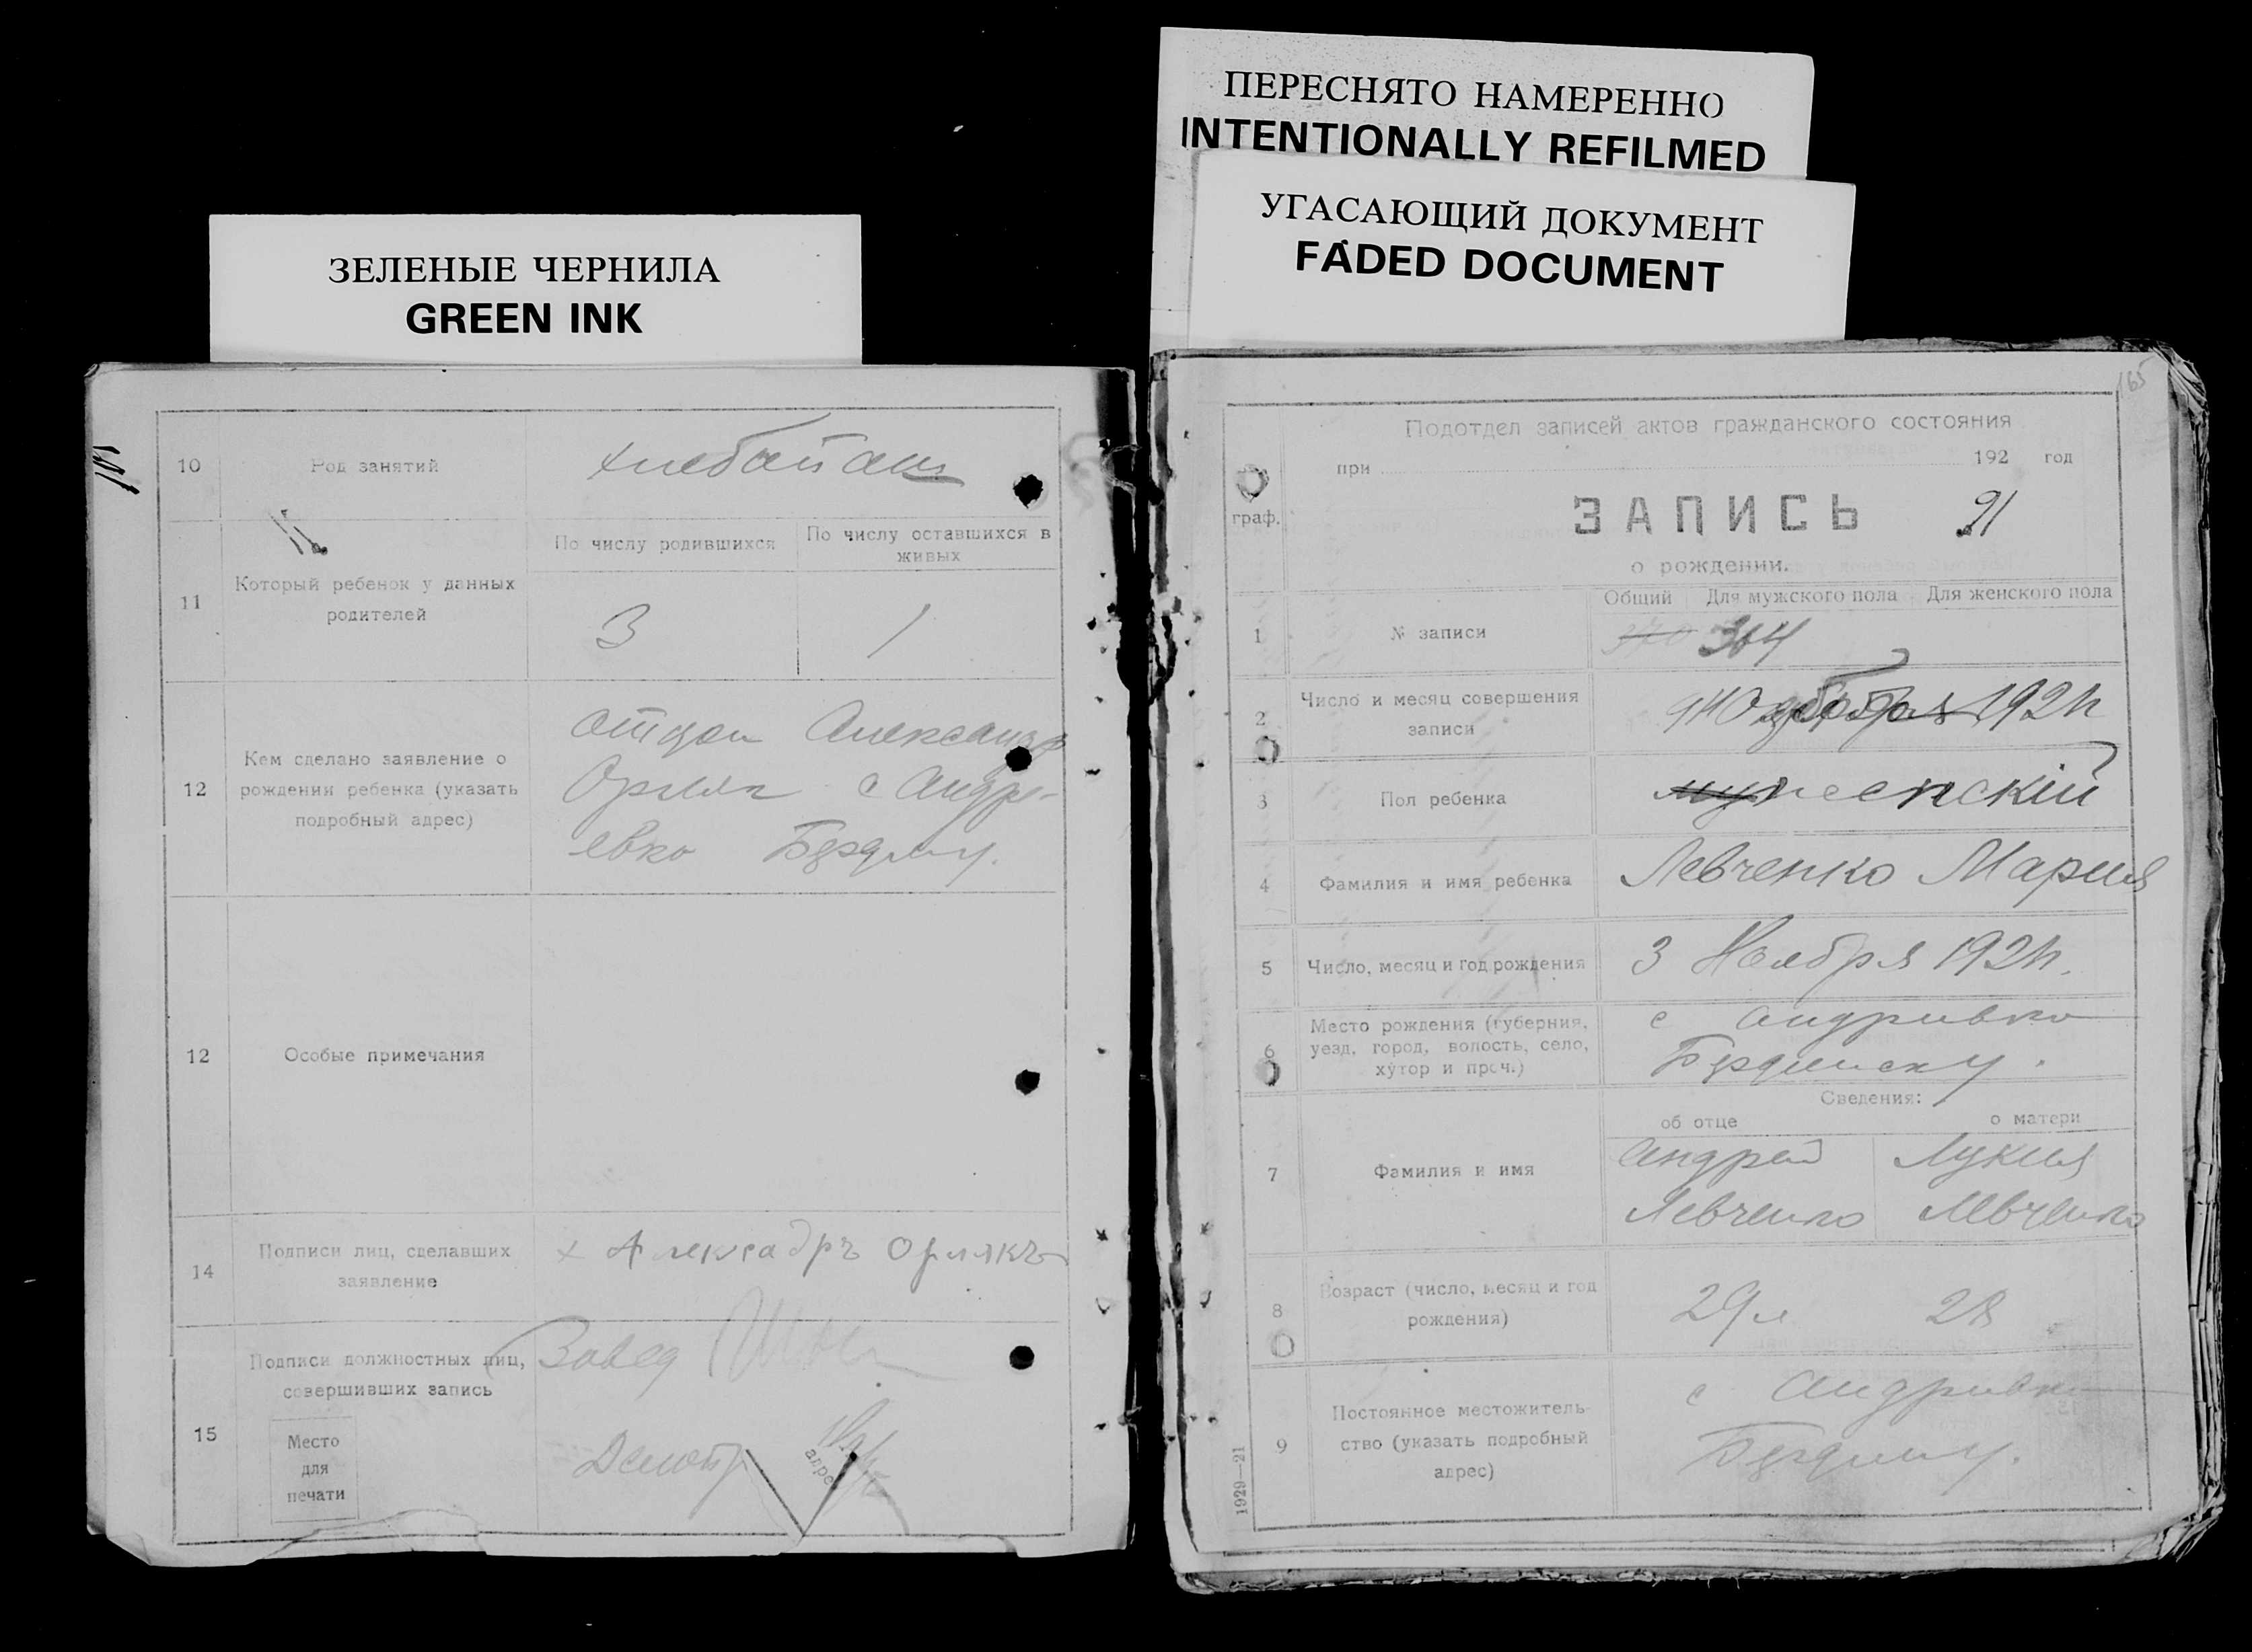 ЗЕЛЕНЫЕ ЧЕРНИЛА
GREEN INK
10
Род занятий
11
Который ребенок у данных
родителей
По числу родившихся
По числу оставшихся в
живых
3
1
12
Кем сделано заявление о
рождении ребенка (указать
подробный адрес)
отцом Александр
Орляк с Андре-
евко
12
Особые примечания
14
Подписи лиц, сделавших
заявление
х Алексадръ Орлякъ
15
Подписи должностных лиц,
совершивших запись
Завед
Место
для
печати
ПЕРЕСНЯТО НАМЕРЕННО
INTENTIONALLY REFILMED
УГАСАЮЩИЙ ДОКУМЕНТ
FADED DOCUMENT
165
граф.
Подотдел записей актов гражданского состояния
при 192 год
ЗАПИСЬ 91
о рождении.
Общий Для мужского пола Для женского пола
1
№ записи
370 364
2
Число и месяц совершения
записи
3
Пол ребенка
4
Фамилия и имя ребенка
Левченко Мария
5
Число, месяц и год рождения
3 Ноября 192
6
Место рождения (губерния,
уезд, город, волость, село,
хутор и проч.)
с Андривка
Бердянску.
Сведения:
об отце о матери
7
Фамилия и имя
Андрей Лукия
Левченко Левченко
8
Возраст (число, месяц и год
рождения)
29 л 28
9
Постоянное местожитель-
ство (указать подробный
адрес)
с Андривка
1929—21